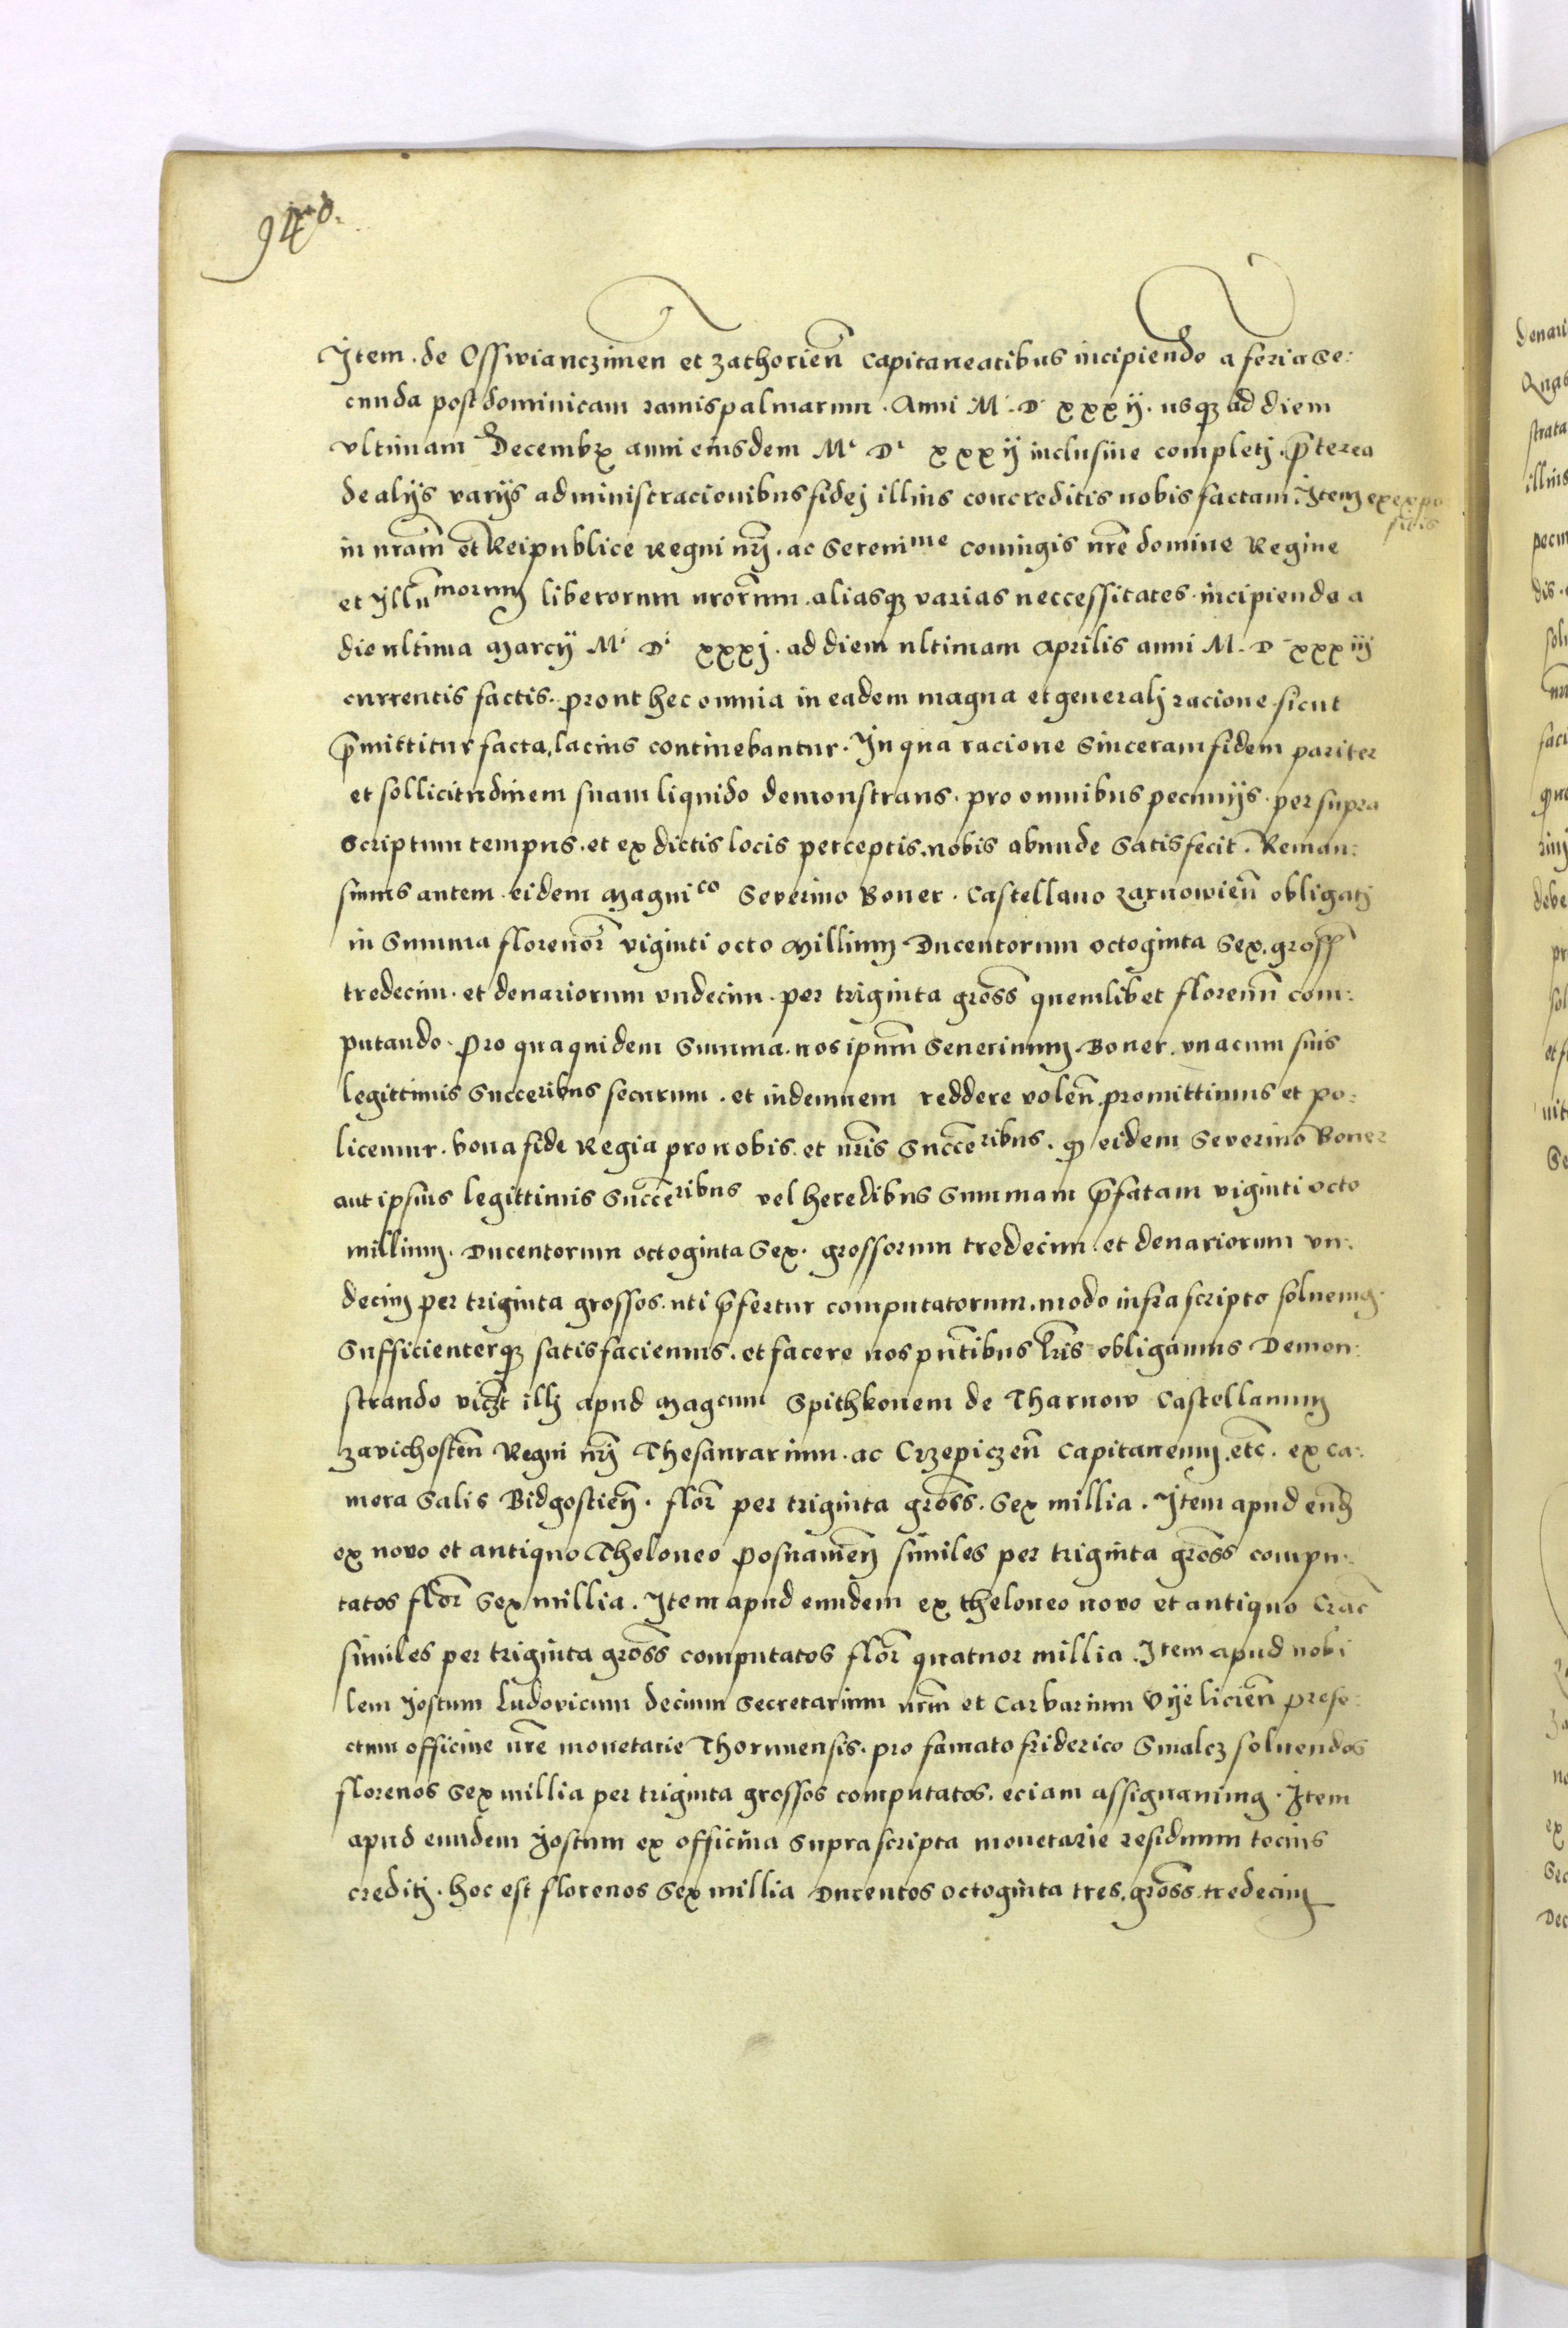 940.
Item . de Osswianczimen et Zathorien̄ capitaneatibus incipiendo a feria se:
cunda post dominicam ramispalmarum . Anni M . D xxxij . usqȝ ad diem
ultimam Decembr̄ anni eiusdem Mⁱ Dⁱ xxxij inclusive completj . p̄terea
de alijs varijs administracionibus fidej illius concreditis nobis factam . Item ex expo
sitis
in nrām et Reipublice Regni nrj . ac Serenime coniugis nrē domine Regine
et Jllumorum liberorum nrōrum . aliasqȝ varias neccessitates . incipiendo a
die ultima Marcij Mⁱ Dⁱ xxxj . ad diem ultimam Aprilis anni M . D xxxiij
currentis factis . prout hec omnia in eadem magna et generalj racione sicut
p̄mittitur facta, lacius continebantur . In qua racione sinceram fidem pariter
et sollicitudinem suam liquido demonstrans . pro omnibus pecunijs . per supra
scriptum tempus . et ex dictis locis perceptis . nobis abunde satisfecit . Reman:
simus autem . eidem Magnico Severino Boner . Castellano Zarnowien̄ obligatj
in summa florenor̄ viginti octo millium Ducentorum octoginta sex . gross̄
tredecim . et denariorum undecim . per triginta gross̄ quemlibet florenū com:
putando . Pro quaquidem summa . nos ipsum̄ Severinum . Boner . unacum suis
legittimis succeribus securum . et indemnem reddere volen̄ . promittimus et po:
licemur . bona fide Regia pro nobis . et nrīs succeribus . qƺ eidem Severino Boner
aut ipsius legittimis succeribus vel heredibus summam p̄fatam viginti octo
millium . Ducentorum octoginta sex . grossorum tredecim . et denariorum un:
decim per triginta grossos . uti p̄fertur computatorum . modo infra scripto solvemus .
sufficienterqȝ satisfaciemus . et facere nos pn̄tibus lrīs obligamus Demon:
strando viczt illj apud Magcum Spithkonem de Tharnow Castellanum
Zavichosten̄ Regni nrj Thesaurarium . ac Crzepiczen̄ Capitaneum . etc̄ . ex ca:
mera salis Bidgostien̄ . flor̄ per triginta gross̄ . sex millia . Item apud eund̄
ex novo et antiquo Theloneo Posnanien̄ similes per triginta gross̄ compu:
tatos flor̄ sex millia . Item apud eundem ex theloneo novo et antiquo Crac̄
similes per triginta gross̄ computatos flor̄ quatuor millia . Item apud nobi
lem Jostum Ludovicum Decium Secretarium nrm̄ et Carbarium Vijelicien̄ prefe:
ctum officine nrē monetarie Thorunensis . pro famato Friderico Smalcz solvendos
florenos sex millia per triginta grossos computatos . eciam assignamus . Item
apud eundem Jostum ex officina suprascripta monetarie residuum tocius
creditj . hoc est florenos sex millia Ducentos octoginta tres . gross̄ tredecim